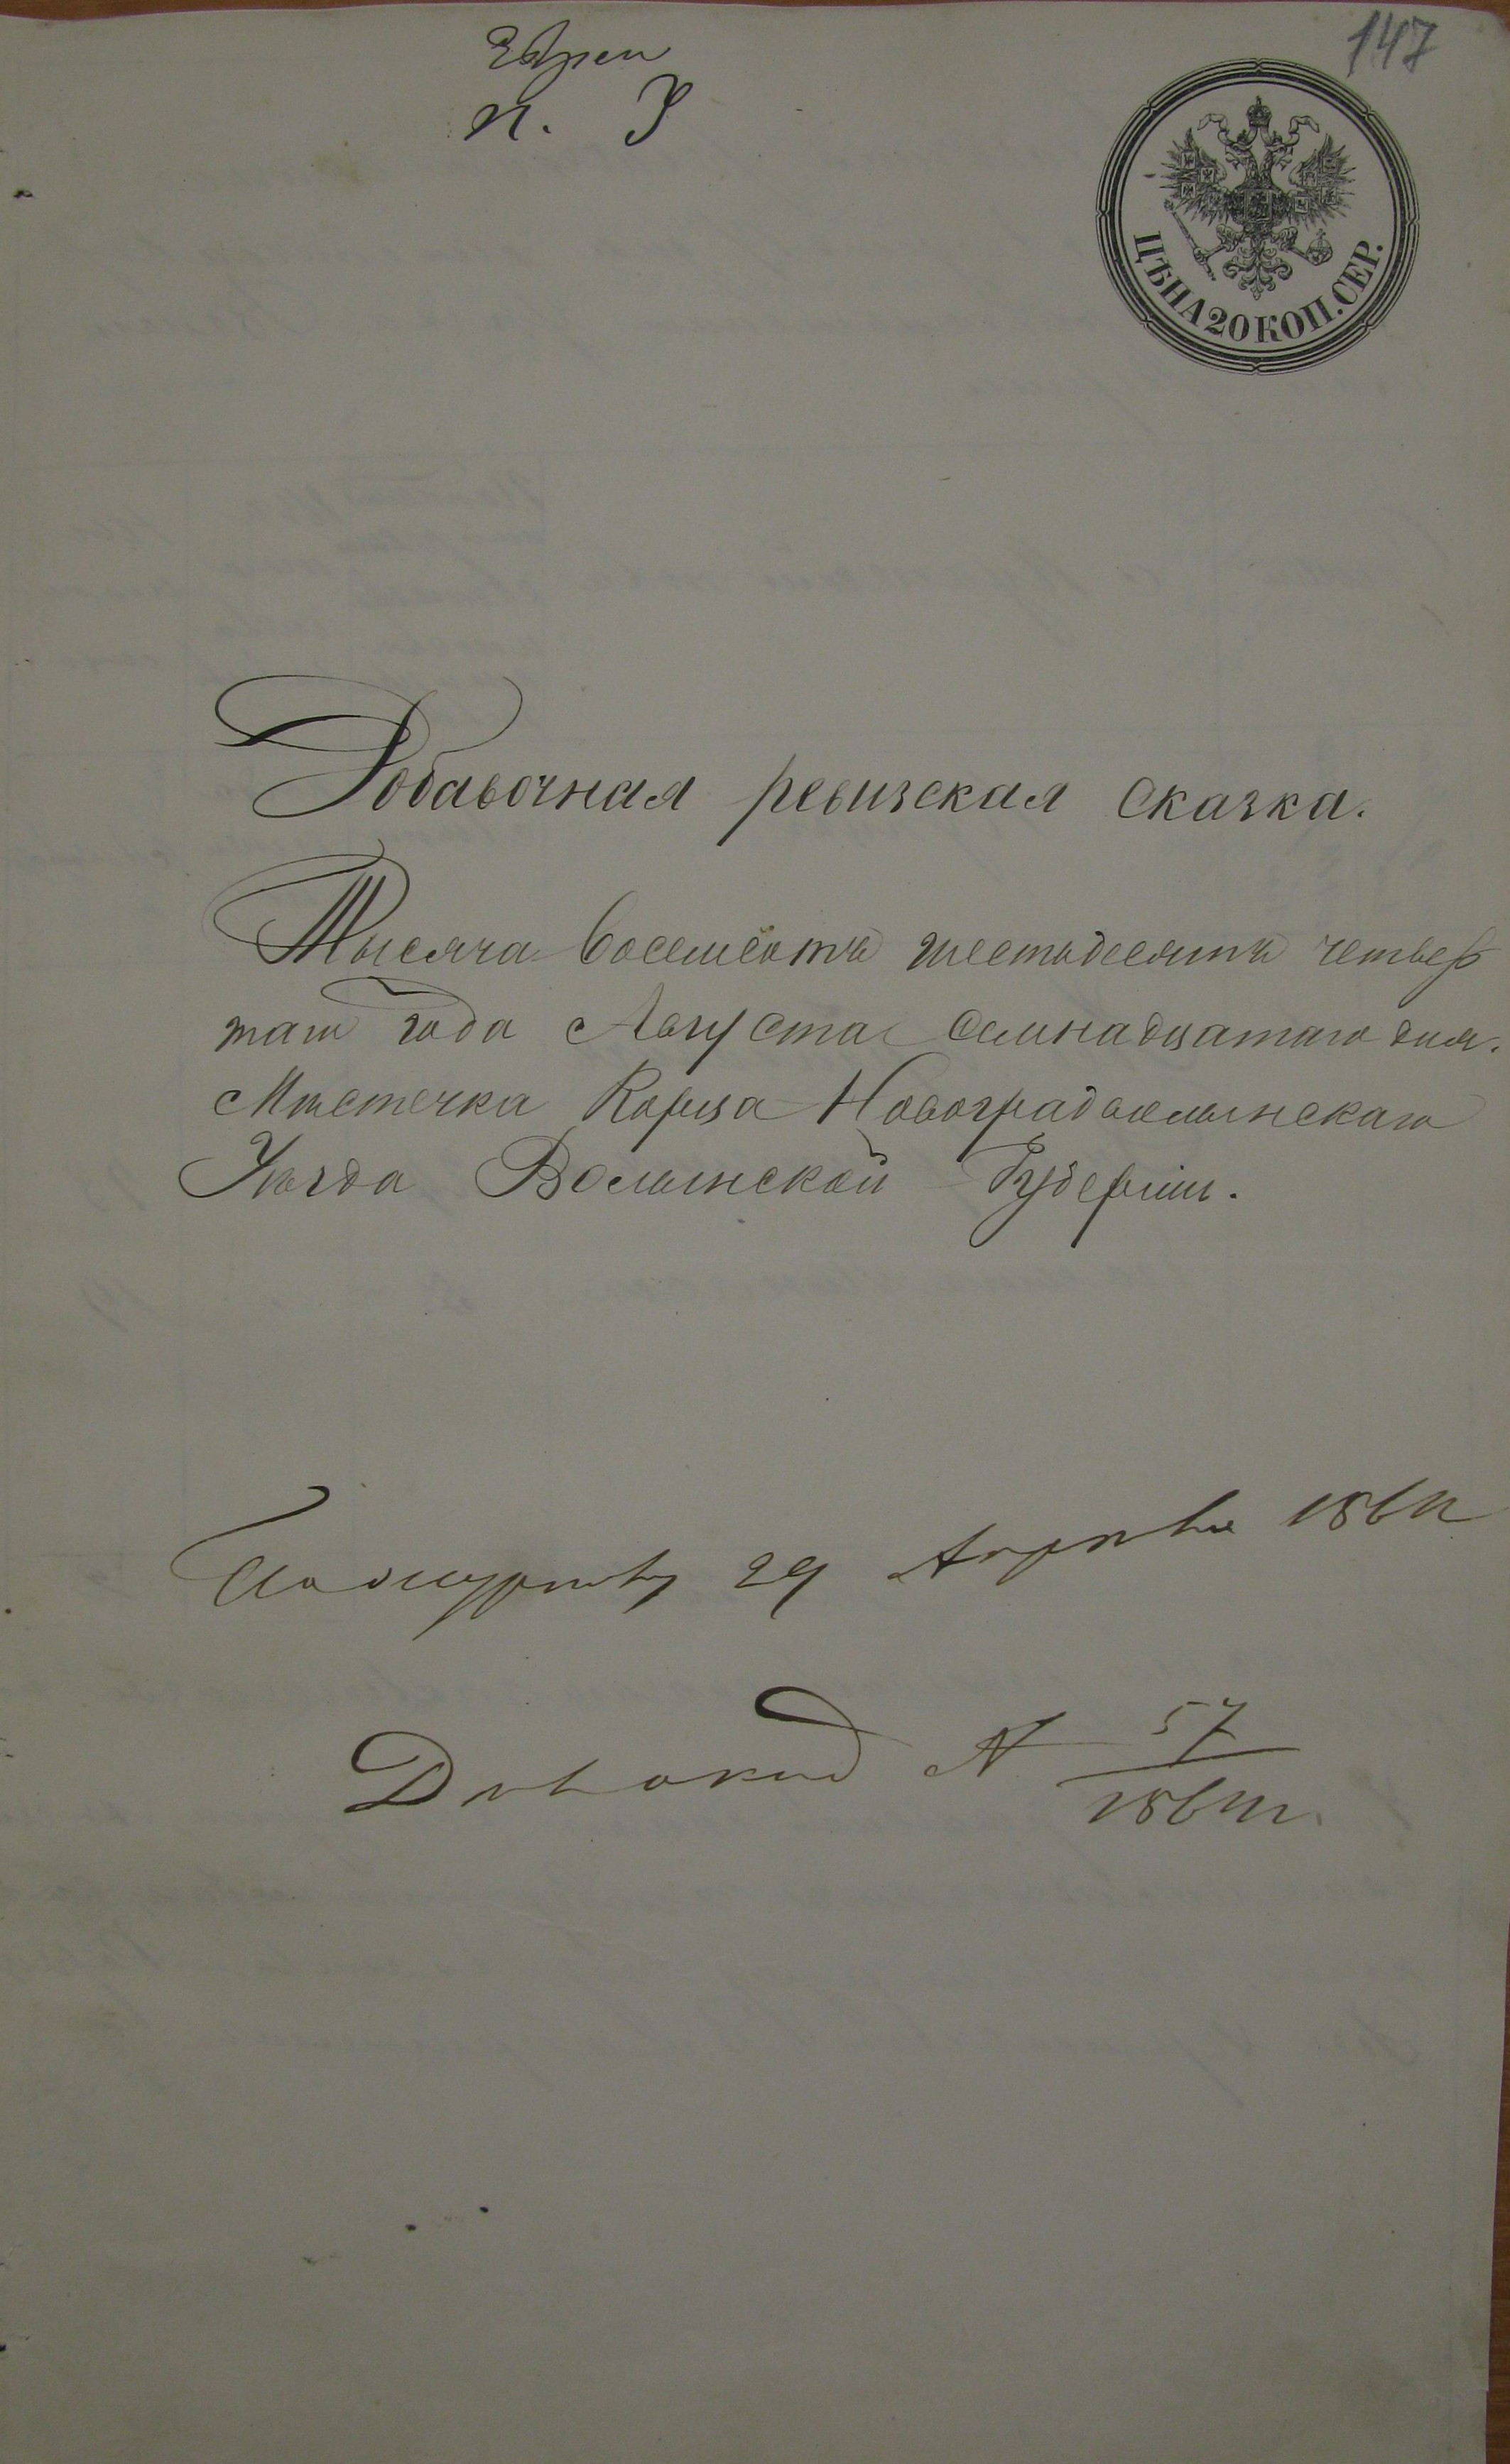 147
Евреи
п. З
ЦѢНА 20 КОП. СЕР.
Добавочная ревизская сказка.
Тысяча восемсотъ шестьдесятъ четвер
таго года Августа семнадцатаго дня.
Мѣстечка Корца Новоградволынскаго
Уѣзда Волынской Губерніи.
По журналу 29 Апрѣля
Дѣло № 57